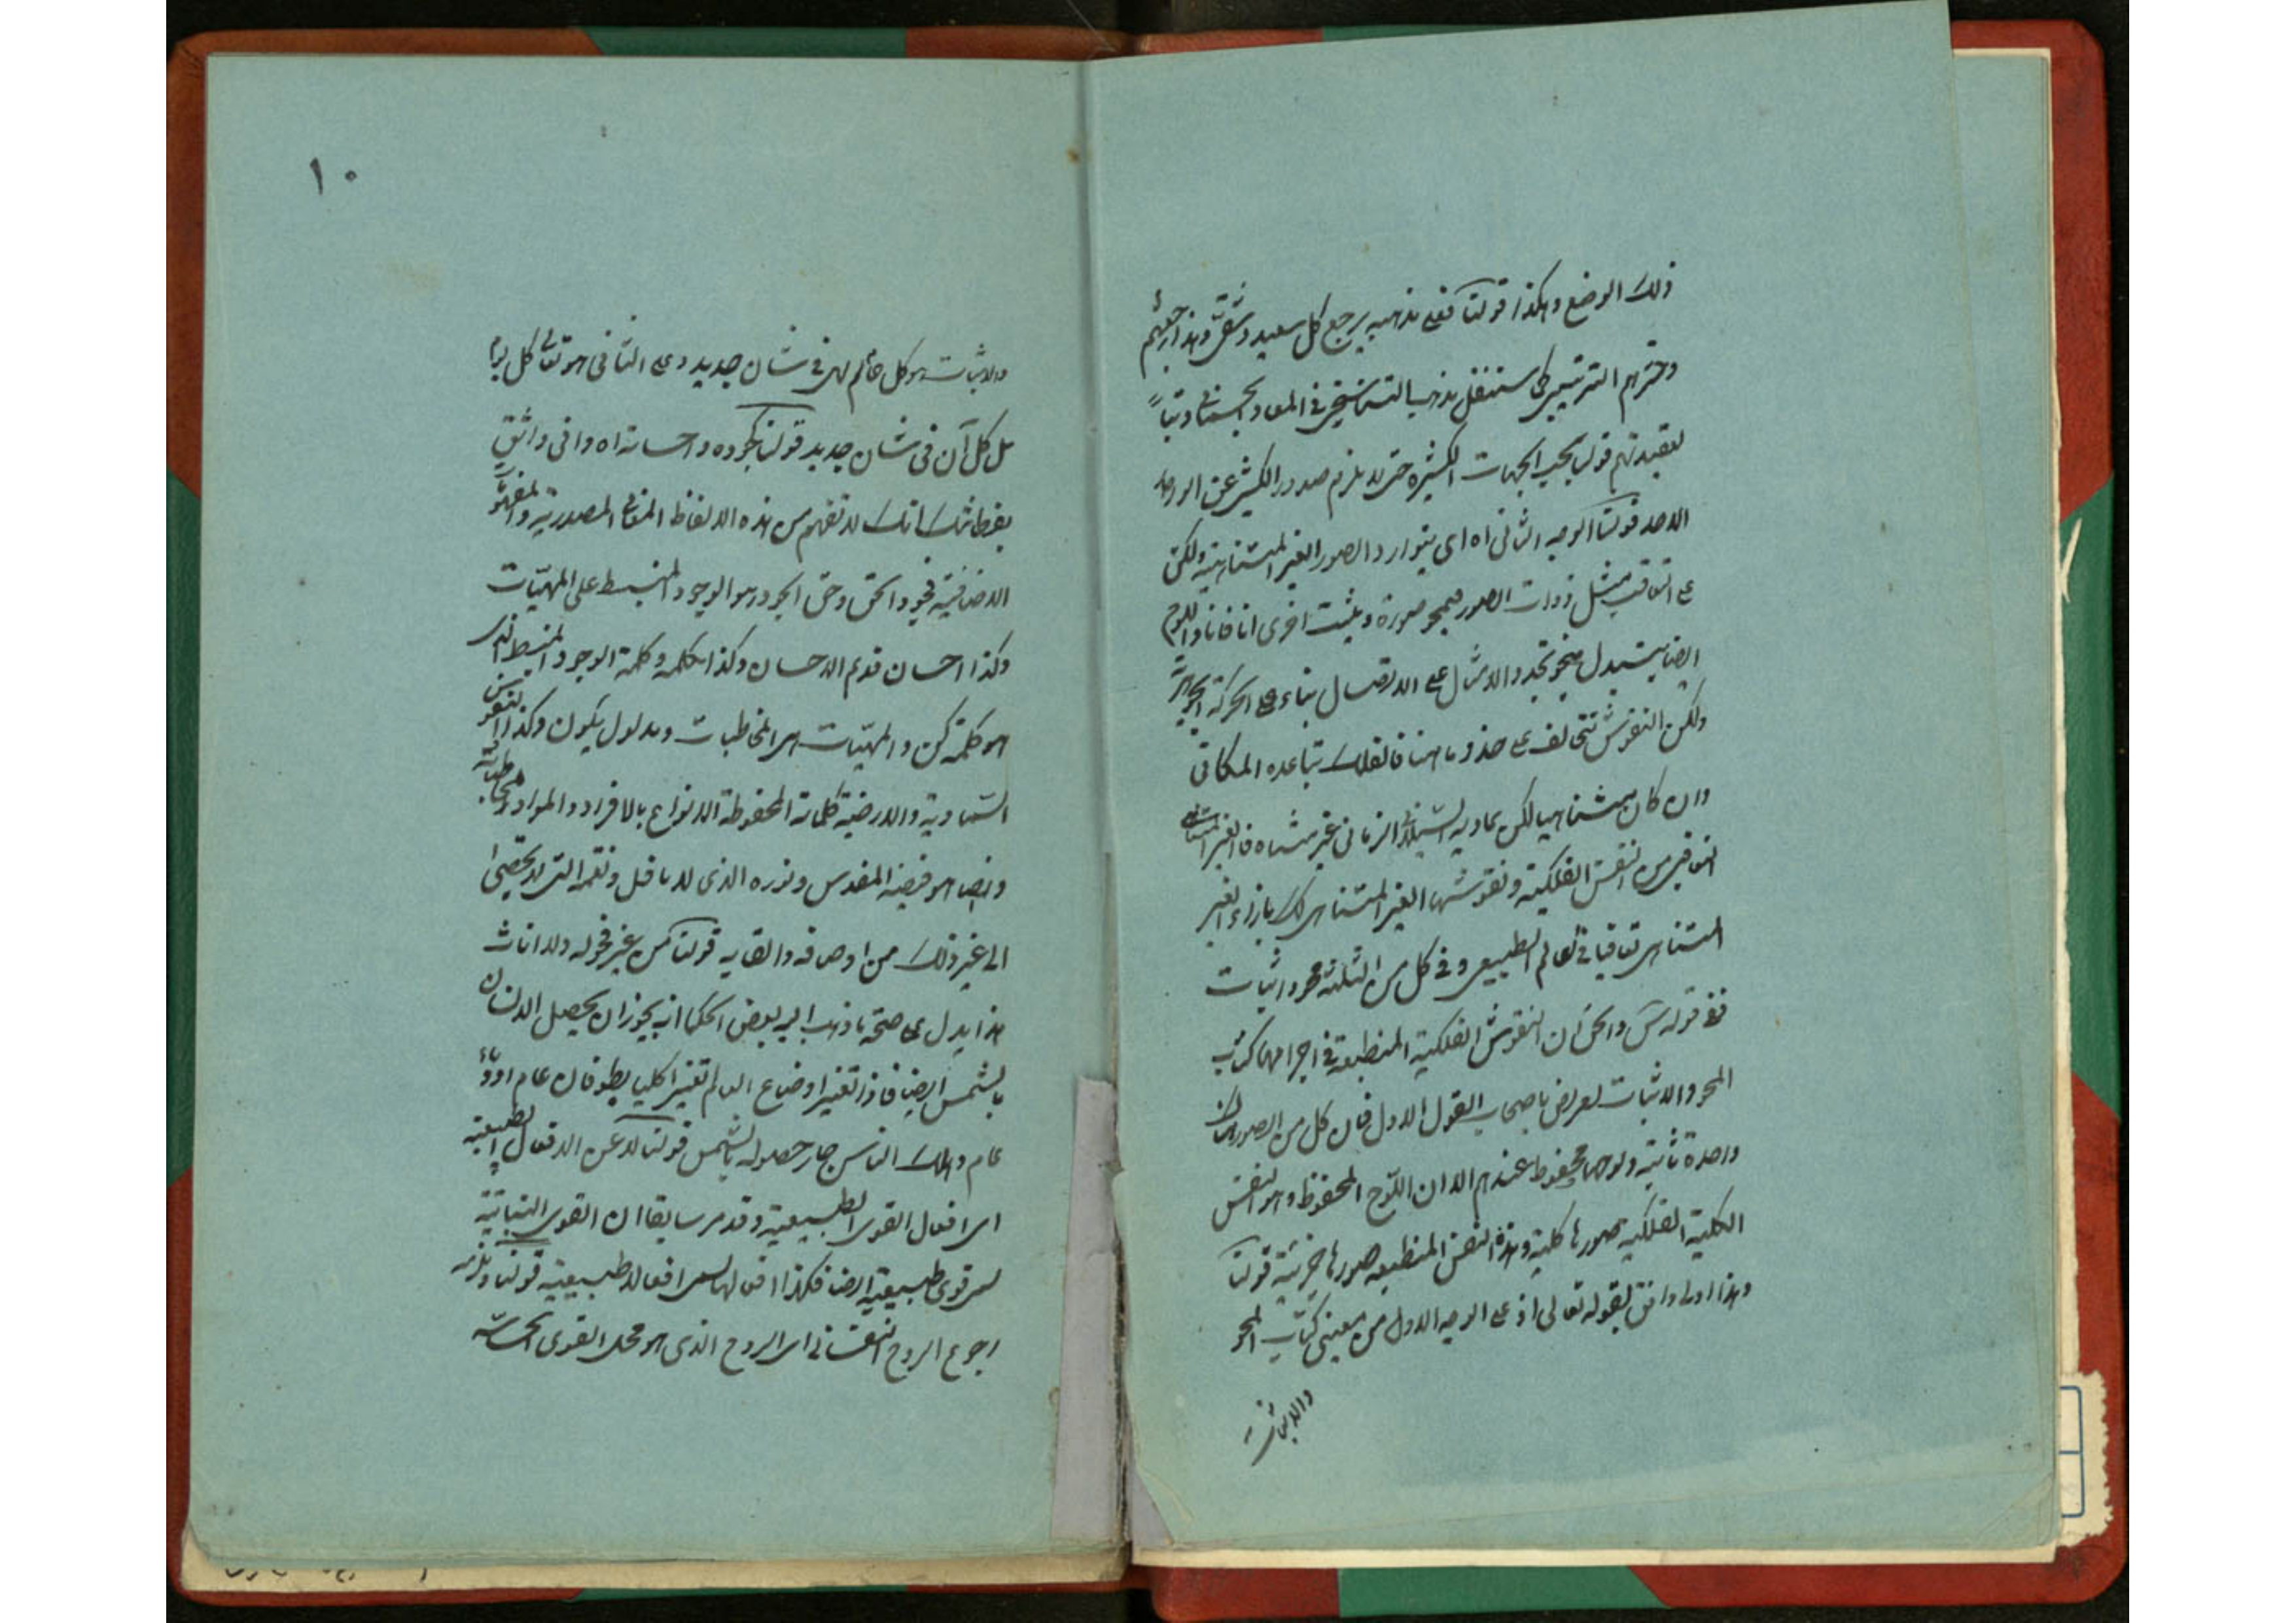 ذلك الوضع وهكذا قولنا فعلى مذهبه يرجع كل سعيد وشقى وهذا رجعتهم
وحشرهم الترتيبى كما سننقل مذهب التناسخى فى المعاد الجسمانى وتباً
لعقيدتهم قولنا بحسب الجهات الكثيرة حتى لا يلزم صدور الكثير عن الواحد
الاحد قولنا الوجه الثانى اه اى يتوارد الصور الغير المتناهية ولكن
على التعاقب مثل ذوات الصور فيمحو صورة ويثبت اخرى انا فانا واللوح
ايضا يتبدل بنحو تجدد الامثال على الاتصال بناء على الحركة الجوهرية
ولكن النقوش تتخالف على حذو ما هنا فالفلك تباعده المكانى
وان كان متناهيا لكن تماديه السيلانى الزمانى غير متناه فالغير المتناهى
التعاقبى من النفس الفلكية ونقوشها الغير المتناهى كذلك بازاء الغير
المتناهى تعاقبا فى العالم الطبيعى وفى كل من الثلثة محو واثبات
ففى قوله س والحق ان النقوش الفلكية المنطبعة فى اجرامها كتاب
المحو والاثبات تعريض باصحاب القول الاول فان كل من الصور هناك
واحدة ثابتة ولوحها محفوظ عندهم الا ان اللوح المحفوظ وهو النفس
الكلية الفلكية صورها كلية وهذه النفس المنطبعة صورها جزئية قولنا
وهذا اولى وافق لقوله تعالى اذ على الوجه الاول من معنيى كتاب المحو
والاثبات
١٠
والاثبات هو كل عالم لهى فى شان جديد وعلى الثانى هو تعالى كل يوم
بل كل آن فى شان جديد قولنا بجوده واحسانه اه وافى واثق
بفطانتك انك لا تفهم من هذه الالفاظ المعانى المصدرية والمفهومات
الاضافية فجود الحق وحق الجود هو الوجود المنبسط على المهيات
وكذا احسان قديم الاحسان وكذا كلمه وكلمة الوجود المنبسط الذى
هو كلمة كن والمهيات هى المخاطبات ومدلول يكون وكذا النفوس
السماوية والارضية كلماته المحفوظة الانواع بالافراد والمواد
وايضا هو فيضه المقدس ونوره الذى لا يافل ونعمه التى لا تحصى
الى غير ذلك من اوصافه والقابه قولنا من غير فحولة ولا اناث
هذا يدل على صحة ما ذهب اليه بعض الحكما انه يجوز ان يحصل الانسان
بالشمس ايضا فاذا تغير اوضاع العالم تغيرا كليا بطوفان عام او وباء
عام وهلك الناس جاز حصوله بالشمس قولنا لا عن الافعال الطبيعية
اى افعال القوى الطبيعية وقد مر سابقا ان القوى النباتية
هى قوى طبيعية ايضا فكذا افعالها هى افعال طبيعية قولنا ويلزمه
رجوع الروح النفسانى اى الروح الذى هو محل القوى الحساسة